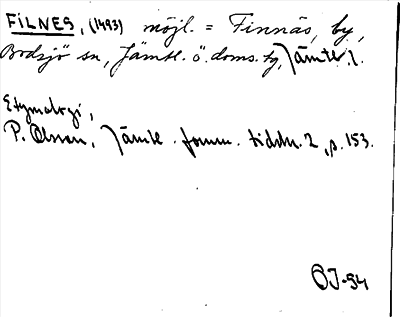 FILNES, (1493) möjl. = Finnäs, by,
Bodsjö sn, Jämtl. ö. doms. tg, Jämtl. l.
Etymologi,
P. Olsson, Jämtl. fornm. tidskr. 2, s. 153.
ÖJ-54